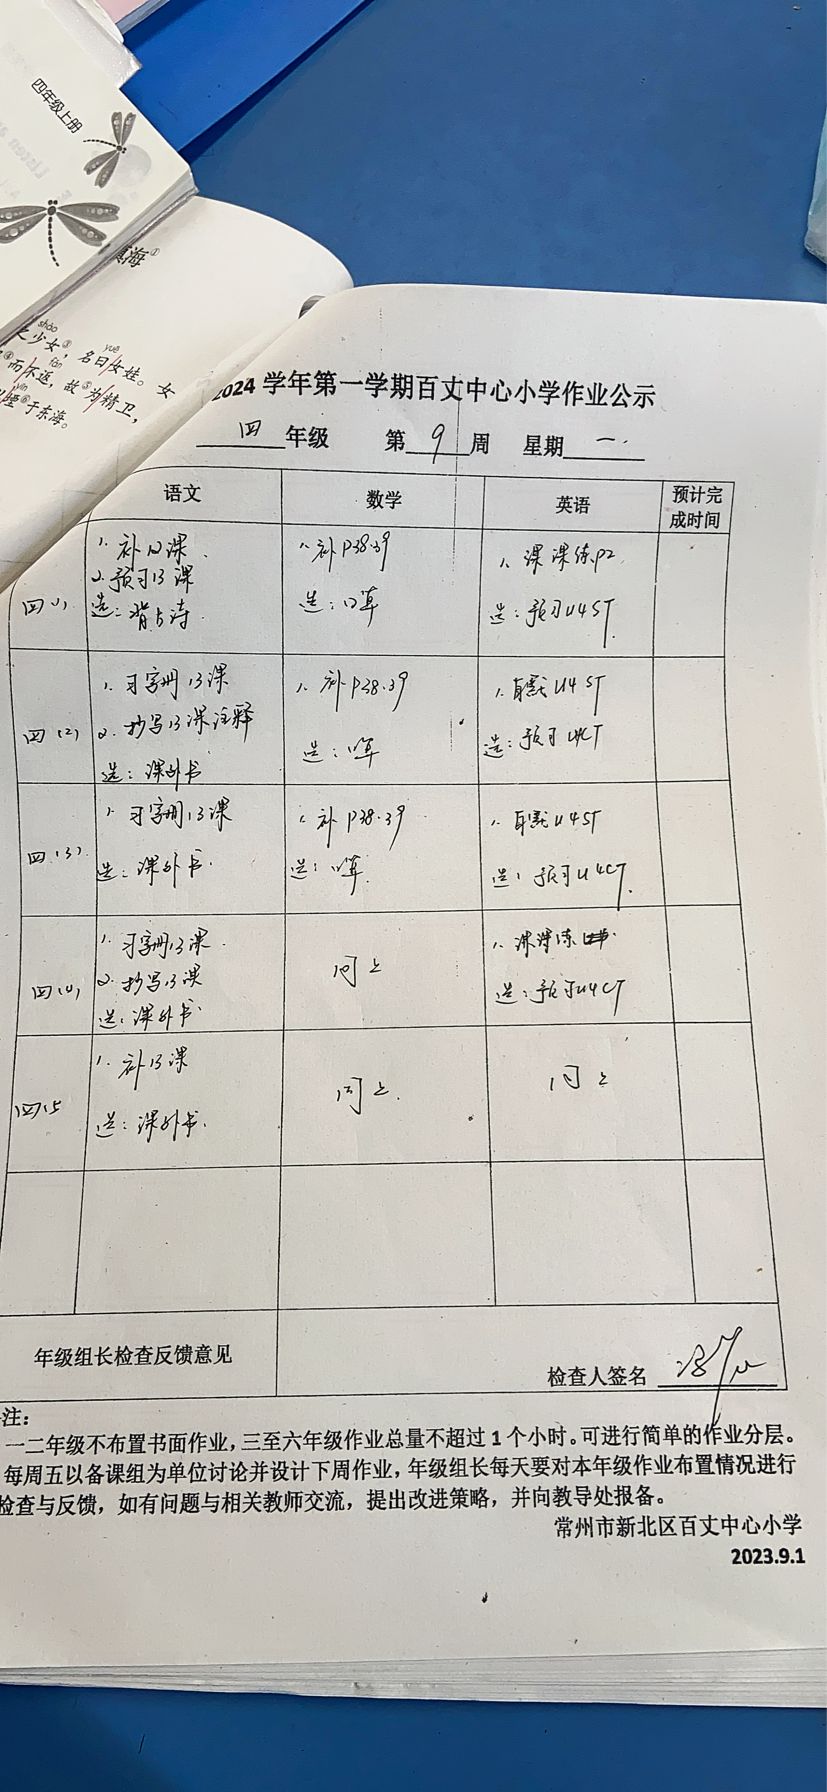 四年级上册
填海①
shào yuē
之少女③，名曰女娃。女
fǎn
④而不返，故⑤为精卫，
yīn
堙⑥于东海。
2024 学年第一学期百丈中心小学作业公示
四年级 第9周 星期一.
语文 数学 英语 预计完成时间
四(1)
1. 补12课.
2. 预习13课
选：背古诗
1. 补P38.39
选：口算
1. 课课练P2
选：预习U4ST
四(2)
1. 习字册13课
2. 抄写13课注释
选：课外书
1. 补P38.39
选：口算
1. 自默U4ST
选：预习U4CT
四(3)
1. 习字册13课
选：课外书.
1. 补P38.39
选：口算
1. 自默U4ST
选：预习U4CT
四(4)
1. 习字册13课.
2. 抄写13课
选：课外书.
同上
1. 课课练
选：预习U4CT
四(5
1. 补13课
选：课外书.
同上.
同上
年级组长检查反馈意见
检查人签名
注：
一二年级不布置书面作业，三至六年级作业总量不超过1个小时。可进行简单的作业分层。
每周五以备课组为单位讨论并设计下周作业，年级组长每天要对本年级作业布置情况进行
检查与反馈，如有问题与相关教师交流，提出改进策略，并向教导处报备。
常州市新北区百丈中心小学
2023.9.1